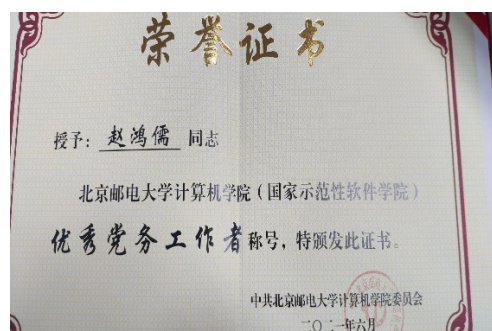 荣誉证书
授予：赵鸿儒 同志
北京邮电大学计算机学院（国家示范性软件学院）
优秀党务工作者称号，特颁发此证书。
中共北京邮电大学计算机学院委员会
二〇二一年六月